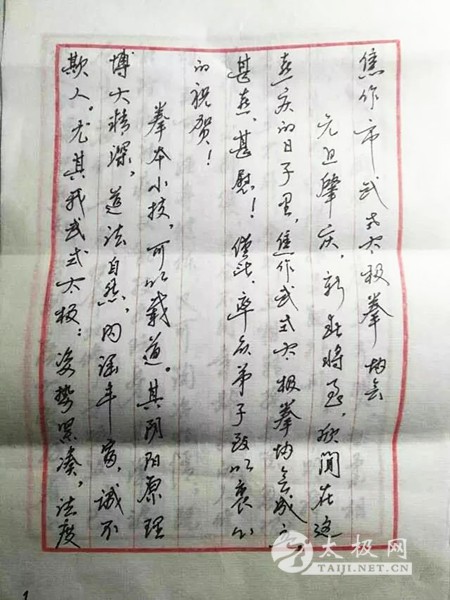 焦作市武式太极拳协会
元旦肇庆，新春将至，欣闻在这
喜庆的日子里，焦作武式太极拳协会成立，
甚喜、甚慰！僅此，率众弟子致以衷心
的祝贺！
拳本小技，可以载道。其阴阳原理
博大精深，道法自然，内涵丰富，诚不
欺人。尤其我武式太极：姿势紧凑，法度
1
太极网
TAIJI.NET.CN